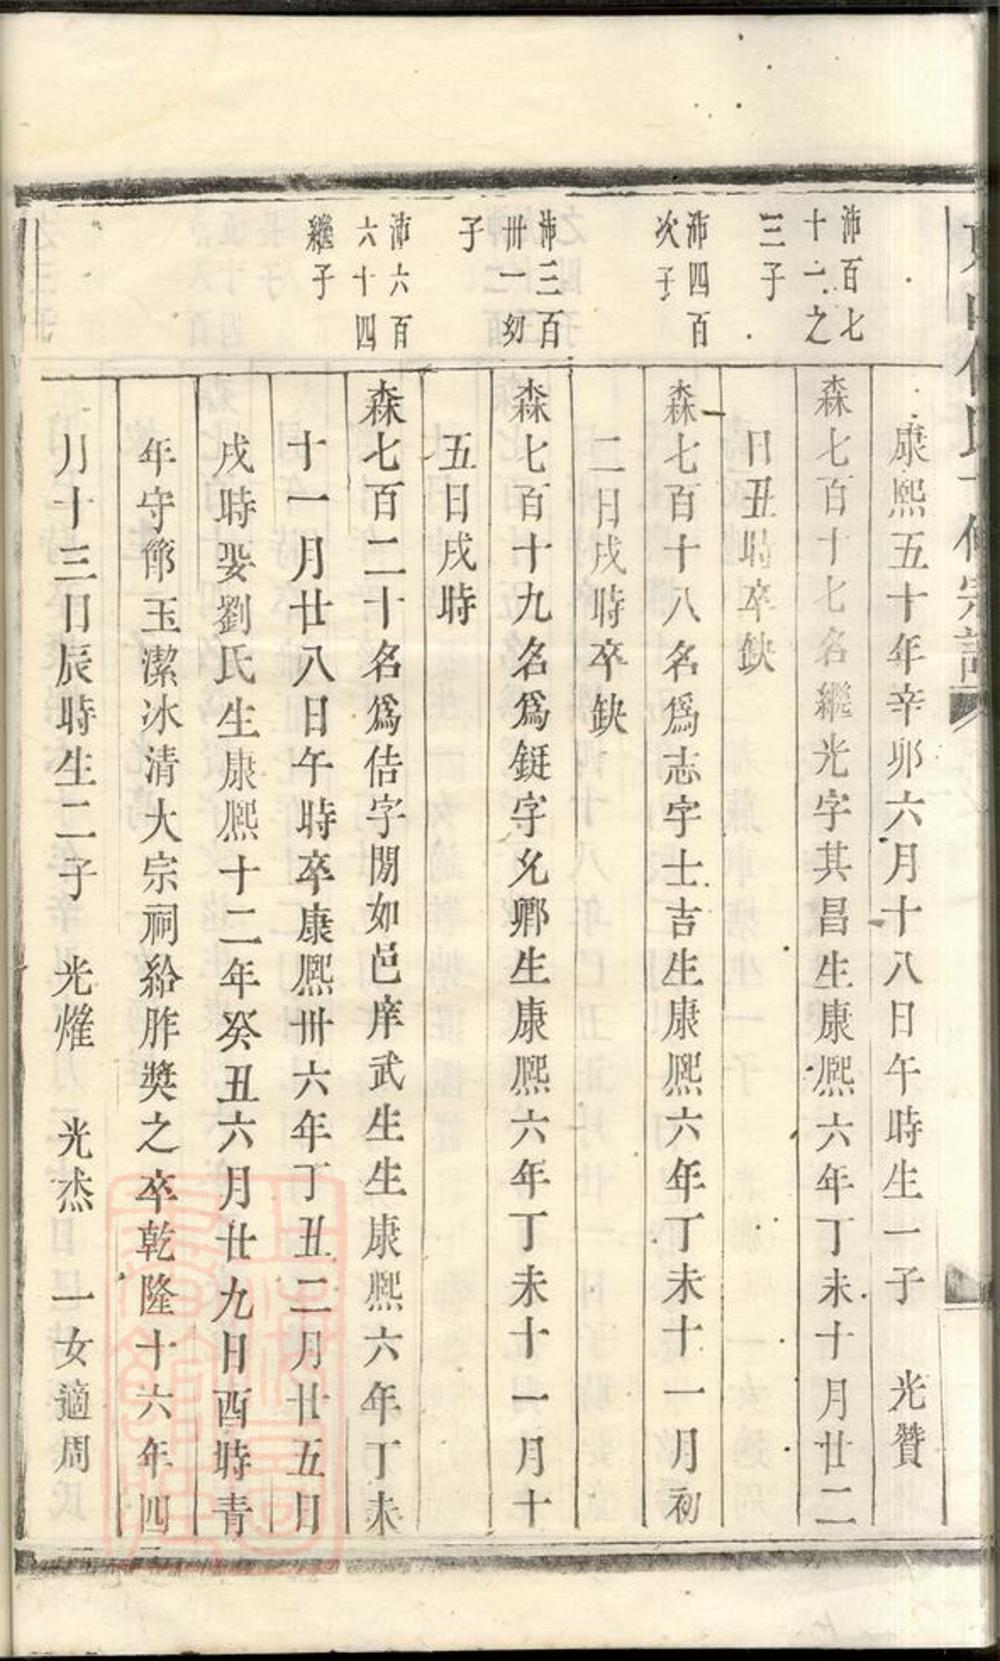 康熙五十年辛卯六月十八日午時生一子　光贊
沛百七
十一之
三子
森七百十七名繼光字其昌生康熙六年丁未十月廿二
日丑時卒缺
沛四百
次子
森七百十八名爲志字士吉生康熙六年丁未十一月初
二日戌時卒缺
沛三百
卅一幼
子
森七百十九名爲鋌字允卿生康熙六年丁未十一月十
五日戌時
沛六百
六十四
繼子
森七百二十名爲佶字閒如邑庠武生生康熙六年丁未
十一月廿八日午時卒康熙卅六年丁丑二月廿五日
戌時娶劉氏生康熙十二年癸丑六月廿九日酉時青
年守節玉潔冰清大宗祠給胙獎之卒乾隆十六年四
月十三日辰時生二子　光㸌　光烋　一女適周氏